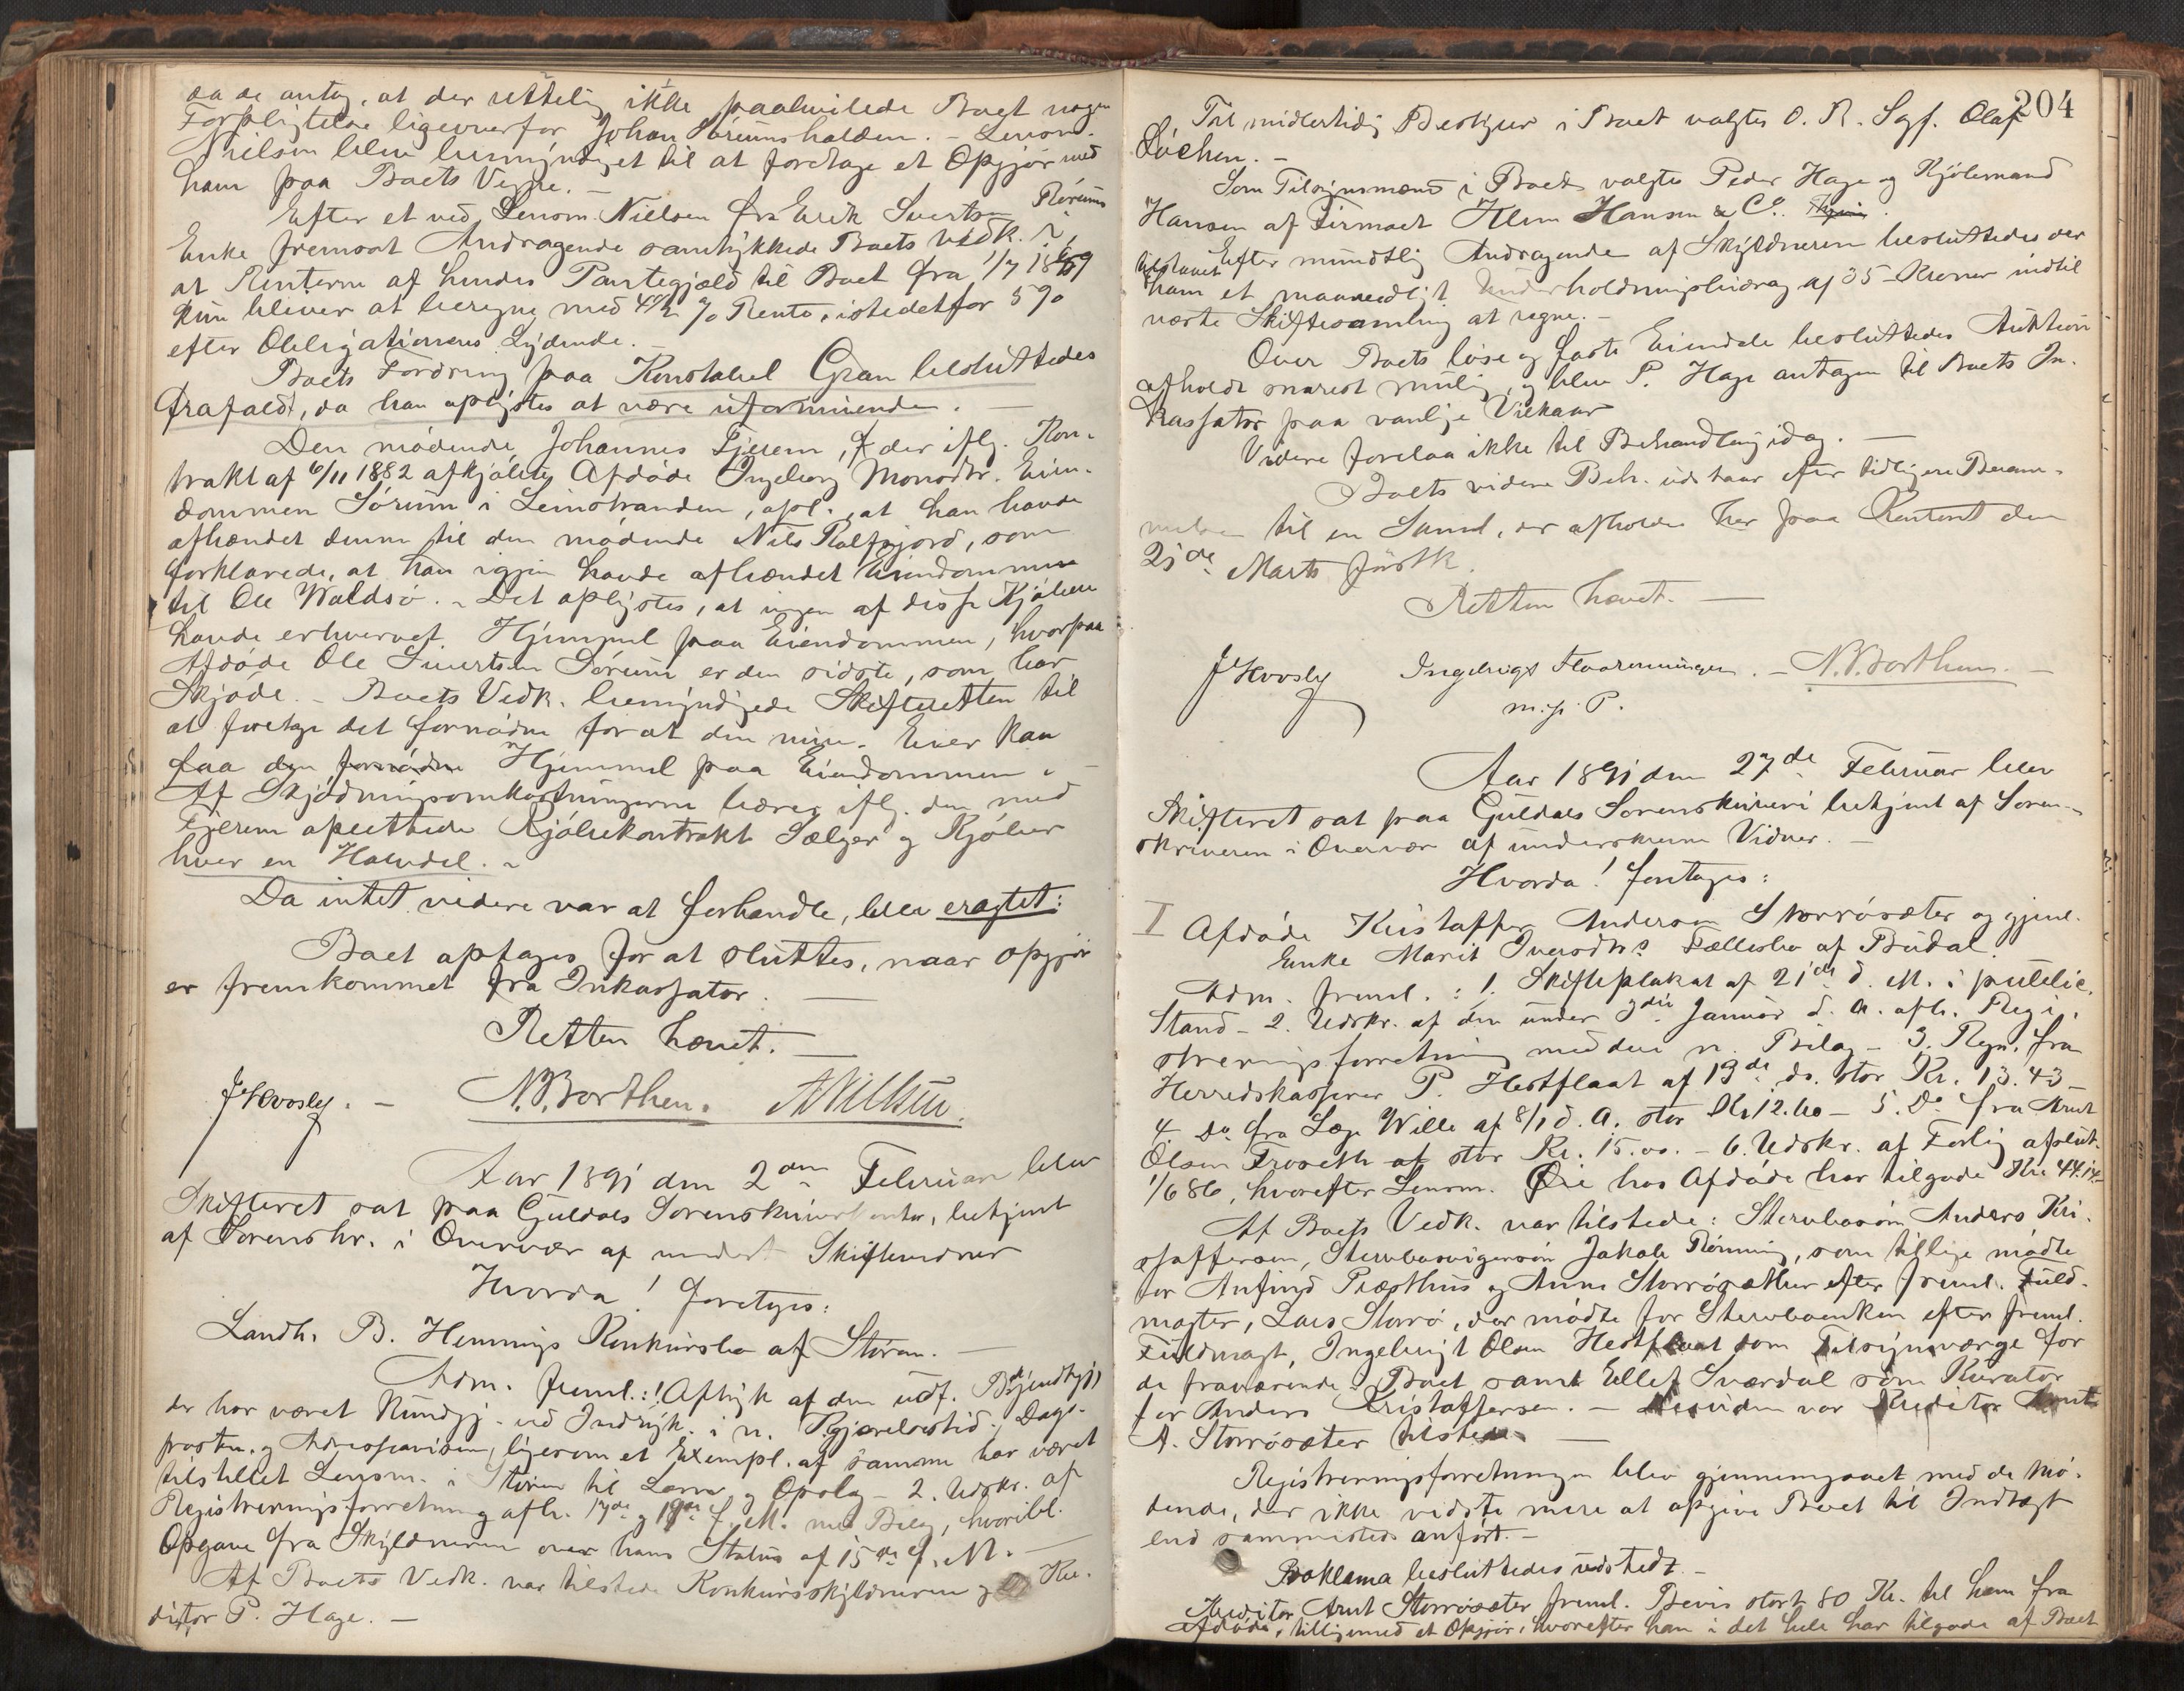 da de antog, at der rettelig ikke paahvilede Boet nogen
Forpligtelse ligeoverfor Johan Sørumshalden. - Lensm.
Nielsen blev bemyndiget til at foretage et Opgjør med
ham paa Boets Vegne. -
Efter et ved Lensm. Nielsen fra Erik Sivertsen Rørums
Enke fremsat Andragende samtykkede Boets Vedk. i,
at Renterne af hendes Pantegjæld til Boet fra 1/7 1889
kun bliver at beregne med 4 1/2 % Rente, istedetfor 5 %
efter Obligationens Lydende. -
Boets Fordring paa Konstabel Gran besluttedes
frafaldt, da han oplystes at være uformuende. -
Den mødende Johannes Fjerem, der iflg. Kon-
trakt af 6/11 1882 afkjøbte Afdøde Ingeborg Monsdtr. Eien-
dommen Sørum i Leinstranden, opl., at han havde
afhændet denne til den mødende Nils Rolfsjord, som
forklarede, at han igjen havde afhændet Eiendommen
til Ole Waldsø. - Det oplystes, at ingen af disse Kjøbere
havde erhvervet Hjemmel paa Eiendommen, hvorpaa
Afdøde Ole Sivertsen Sørum er den sidste, som har
Skjøde. - Boets Vedk. bemyndigede Skifteretten til
at foretage det fornødne for at den nuv. Eier kan
faa den fornødne Hjemmel paa Eiendommen. -
Af Skjødningsomkostningerne bærer iflg. den med
Fjerem oprettede Kjøbekontrakt Sælger og Kjøber
hver en Halvdel. -
Da intet videre var at forhandle, blev eragtet:
Boet optages for at sluttes, naar Opgjør
er fremkommet fra Inkassator. -
Retten hævet. -
J Hovsly. - N. Borthen. A Nielsen.
Aar 1891 den 2den Februar blev
Skifteret sat paa Guldals Sorenskriverkontor, betjent
af Sorenskr. i Overvær af undert. Skiftevidner
Hvorda! foretoges:
Landh. B. Hemmings Konkursbo af Støren. -
Adm. freml.: 1. Aftryk af den udf. Bekjendtgj.
der har været Kundgj. ved Indryk. i n. Kgjørelsestid., Dags-
posten og Adresseavisen, ligesom et Exempl. af samme har været
tilstillet Lensm. i Støren til Læsn. og Opslag - 2. Udskr. af
Registreringsforretning afh. 17de og 19de f. M. med Bilag, hvoribl.
Opgave fra Skyldneren over hans Status af 15de f. M. -
Af Boets Vedk. var tilstede Konkursskyldneren og Kre-
ditor P. Hage. -
204
Til midlertidig Bestyrer i Boet valgtes O. R. Sagf. Olaf
Løchen. -
Som Tilsynsmænd i Boet valgtes Peder Hage og Kjøbmand
Hansen af Firmaet Klem Hansen & Co.
Efter mundtlig Andragende af Skyldneren besluttedes der
tilstaaet ham et maanedligt Underholdningsbidrag af 35 - Kroner indtil
næste Skiftesamling at regne. -
Over Boets løse og faste Eiendele besluttedes Auktion
afholdt snarest mulig, og blev P. Hage antagen til Boets In-
kassator paa vanlige Vilkaar
Videre forelaa ikke til Behandling idag. -
Boets videre Beh. udstaar efter tidligere Beram-
melse til en Saml, der afholdes her paa Kontoret den
25de Marts førstk.
Retten hævet. -
J Hovsly Ingebrigt Flaarønningen. - N. Borthen. -
m. p. P.
Aar 1891 den 27de Februar blev
Skifteret sat paa Guldals Sorenskriveri betjent af Soren-
skriveren i Overvær af underskrevne Vidner. -
Hvorda! foretoges:
I Afdøde Kristoffer Andersen Storrøsæter og gjenl.
Enke Marit Iversdtrs Fællesbo af Budal.
Adm. freml.: 1. Skifteplakat af 21de d. M. i public.
Stand - 2. Udskr. af den under 3die Januar d. A. afh. Regi-
streringsforretning med dens n. Bilag - 3. Regn. fra
Herredskasserer P. Hestflaat af 19de ds. stor Kr. 13.43 -
4 Do. fra Læge Wille af 8/1 d. A. stor Kr 12.60 - 5. Do fra Arnt
Olsen Froseth at stor Kr. 15.00. - 6. Udskr. af Forlig afslut.
1/6 86, hvorefter Lensm. Øie hos Afdøde har tilgode Kr. 44.14. -
Af Boets Vedk. var tilstede: Stervbosøn Anders Kri-
stoffersen, Stervbosvigersøn Jakob Rønning, som tillige mødte
for Anfind Præsthus og Anne Storrøsæther efter freml. Fuld-
magter, Lars Storrø, der mødte for Stervboenken efter freml.
Fuldmagt, Ingebrigt Olsen Hestflaat som Tilsynsværge for
de fraværende i Boet samt Ellef Sværdal som Kurator
for Anders Kristoffersen. - Desuden var Kreditor Arnt
A. Storrøsæter tilstede. -
Registreringsforretningen blev gjennemgaaet med de mø-
dende, der ikke vidste mere at opgive Boet til Indtægt
end sammesteds anført. -
Proklama besluttedes udstedt. -
Kreditor Arnt Storrøsæter freml. Bevis stort 80 Kr. til ham fra
Afdøde, tilligemed et Opgjør, hvorefter han i det hele har tilgode af Boet